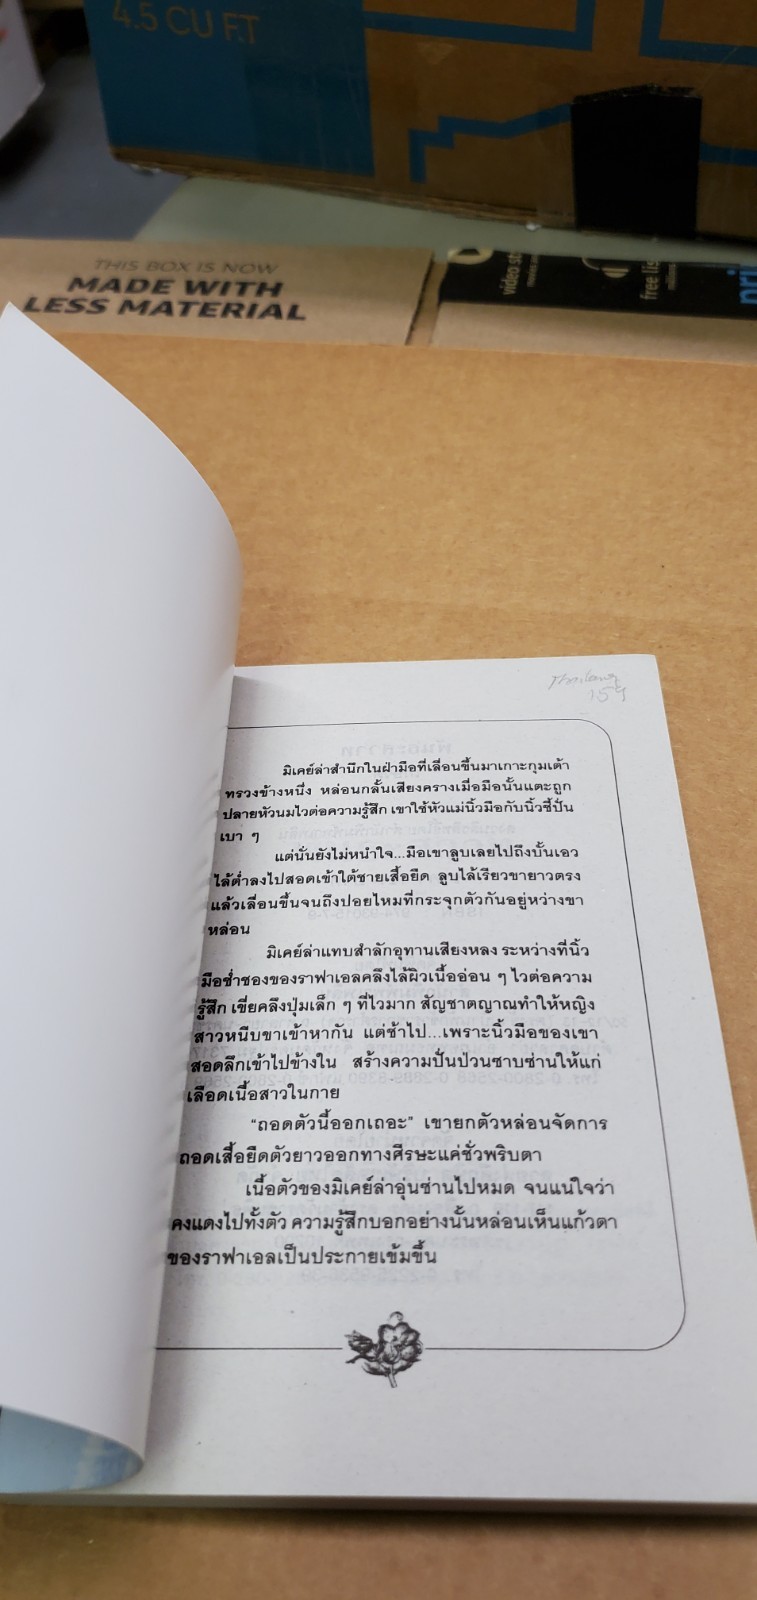 4.5 CU FT
THIS BOX IS NOW
MADE WITH
LESS MATERIAL
video st
free lis
pri
มิเคย์ล่าสำนึกในฝ่ามือที่เลื่อนขึ้นมาเกาะกุมเต้า
ทรวงข้างหนึ่ง หล่อนกลั้นเสียงครางเมื่อมือนั้นแตะถูก
ปลายหัวนมไวต่อความรู้สึก เขาใช้หัวแม่นิ้วมือกับนิ้วชี้ปั่น
เบา ๆ
แต่นั่นยังไม่หนำใจ...มือเขาลูบเลยไปถึงบั้นเอว
ไล้ต่ำลงไปสอดเข้าใต้ชายเสื้อยืด ลูบไล้เรียวขายาวตรง
แล้วเลื่อนขึ้นจนถึงปอยไหมที่กระจุกตัวกันอยู่หว่างขา
หล่อน
มิเคย์ล่าแทบสำลักอุทานเสียงหลง ระหว่างที่นิ้ว
มือช่ำชองของราฟาเอลคลึงไล้ผิวเนื้ออ่อน ๆ ไวต่อความ
รู้สึก เขี่ยคลึงปุ่มเล็ก ๆ ที่ไวมาก สัญชาตญาณทำให้หญิง
สาวหนีบขาเข้าหากัน แต่ช้าไป...เพราะนิ้วมือของเขา
สอดลึกเข้าไปข้างใน สร้างความปั่นป่วนซาบซ่านให้แก่
เลือดเนื้อสาวในกาย
“ถอดตัวนี้ออกเถอะ” เขายกตัวหล่อนจัดการ
ถอดเสื้อยืดตัวยาวออกทางศีรษะแค่ชั่วพริบตา
เนื้อตัวของมิเคย์ล่าอุ่นซ่านไปหมด จนแน่ใจว่า
คงแดงไปทั้งตัว ความรู้สึกบอกอย่างนั้นหล่อนเห็นแก้วตา
ของราฟาเอลเป็นประกายเข้มขึ้น